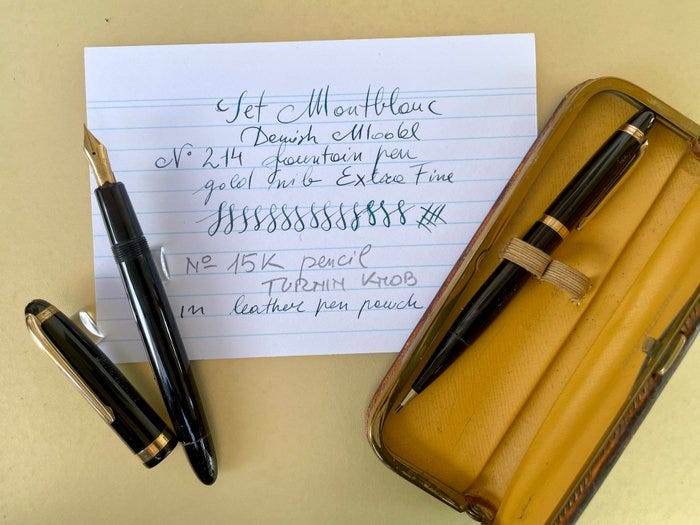 Set Montblanc
Danish Model
N° 214 fountain pen
gold nib Extra Fine
Nº 15K pencil
TURNIN KNOB
in leather pen pouch